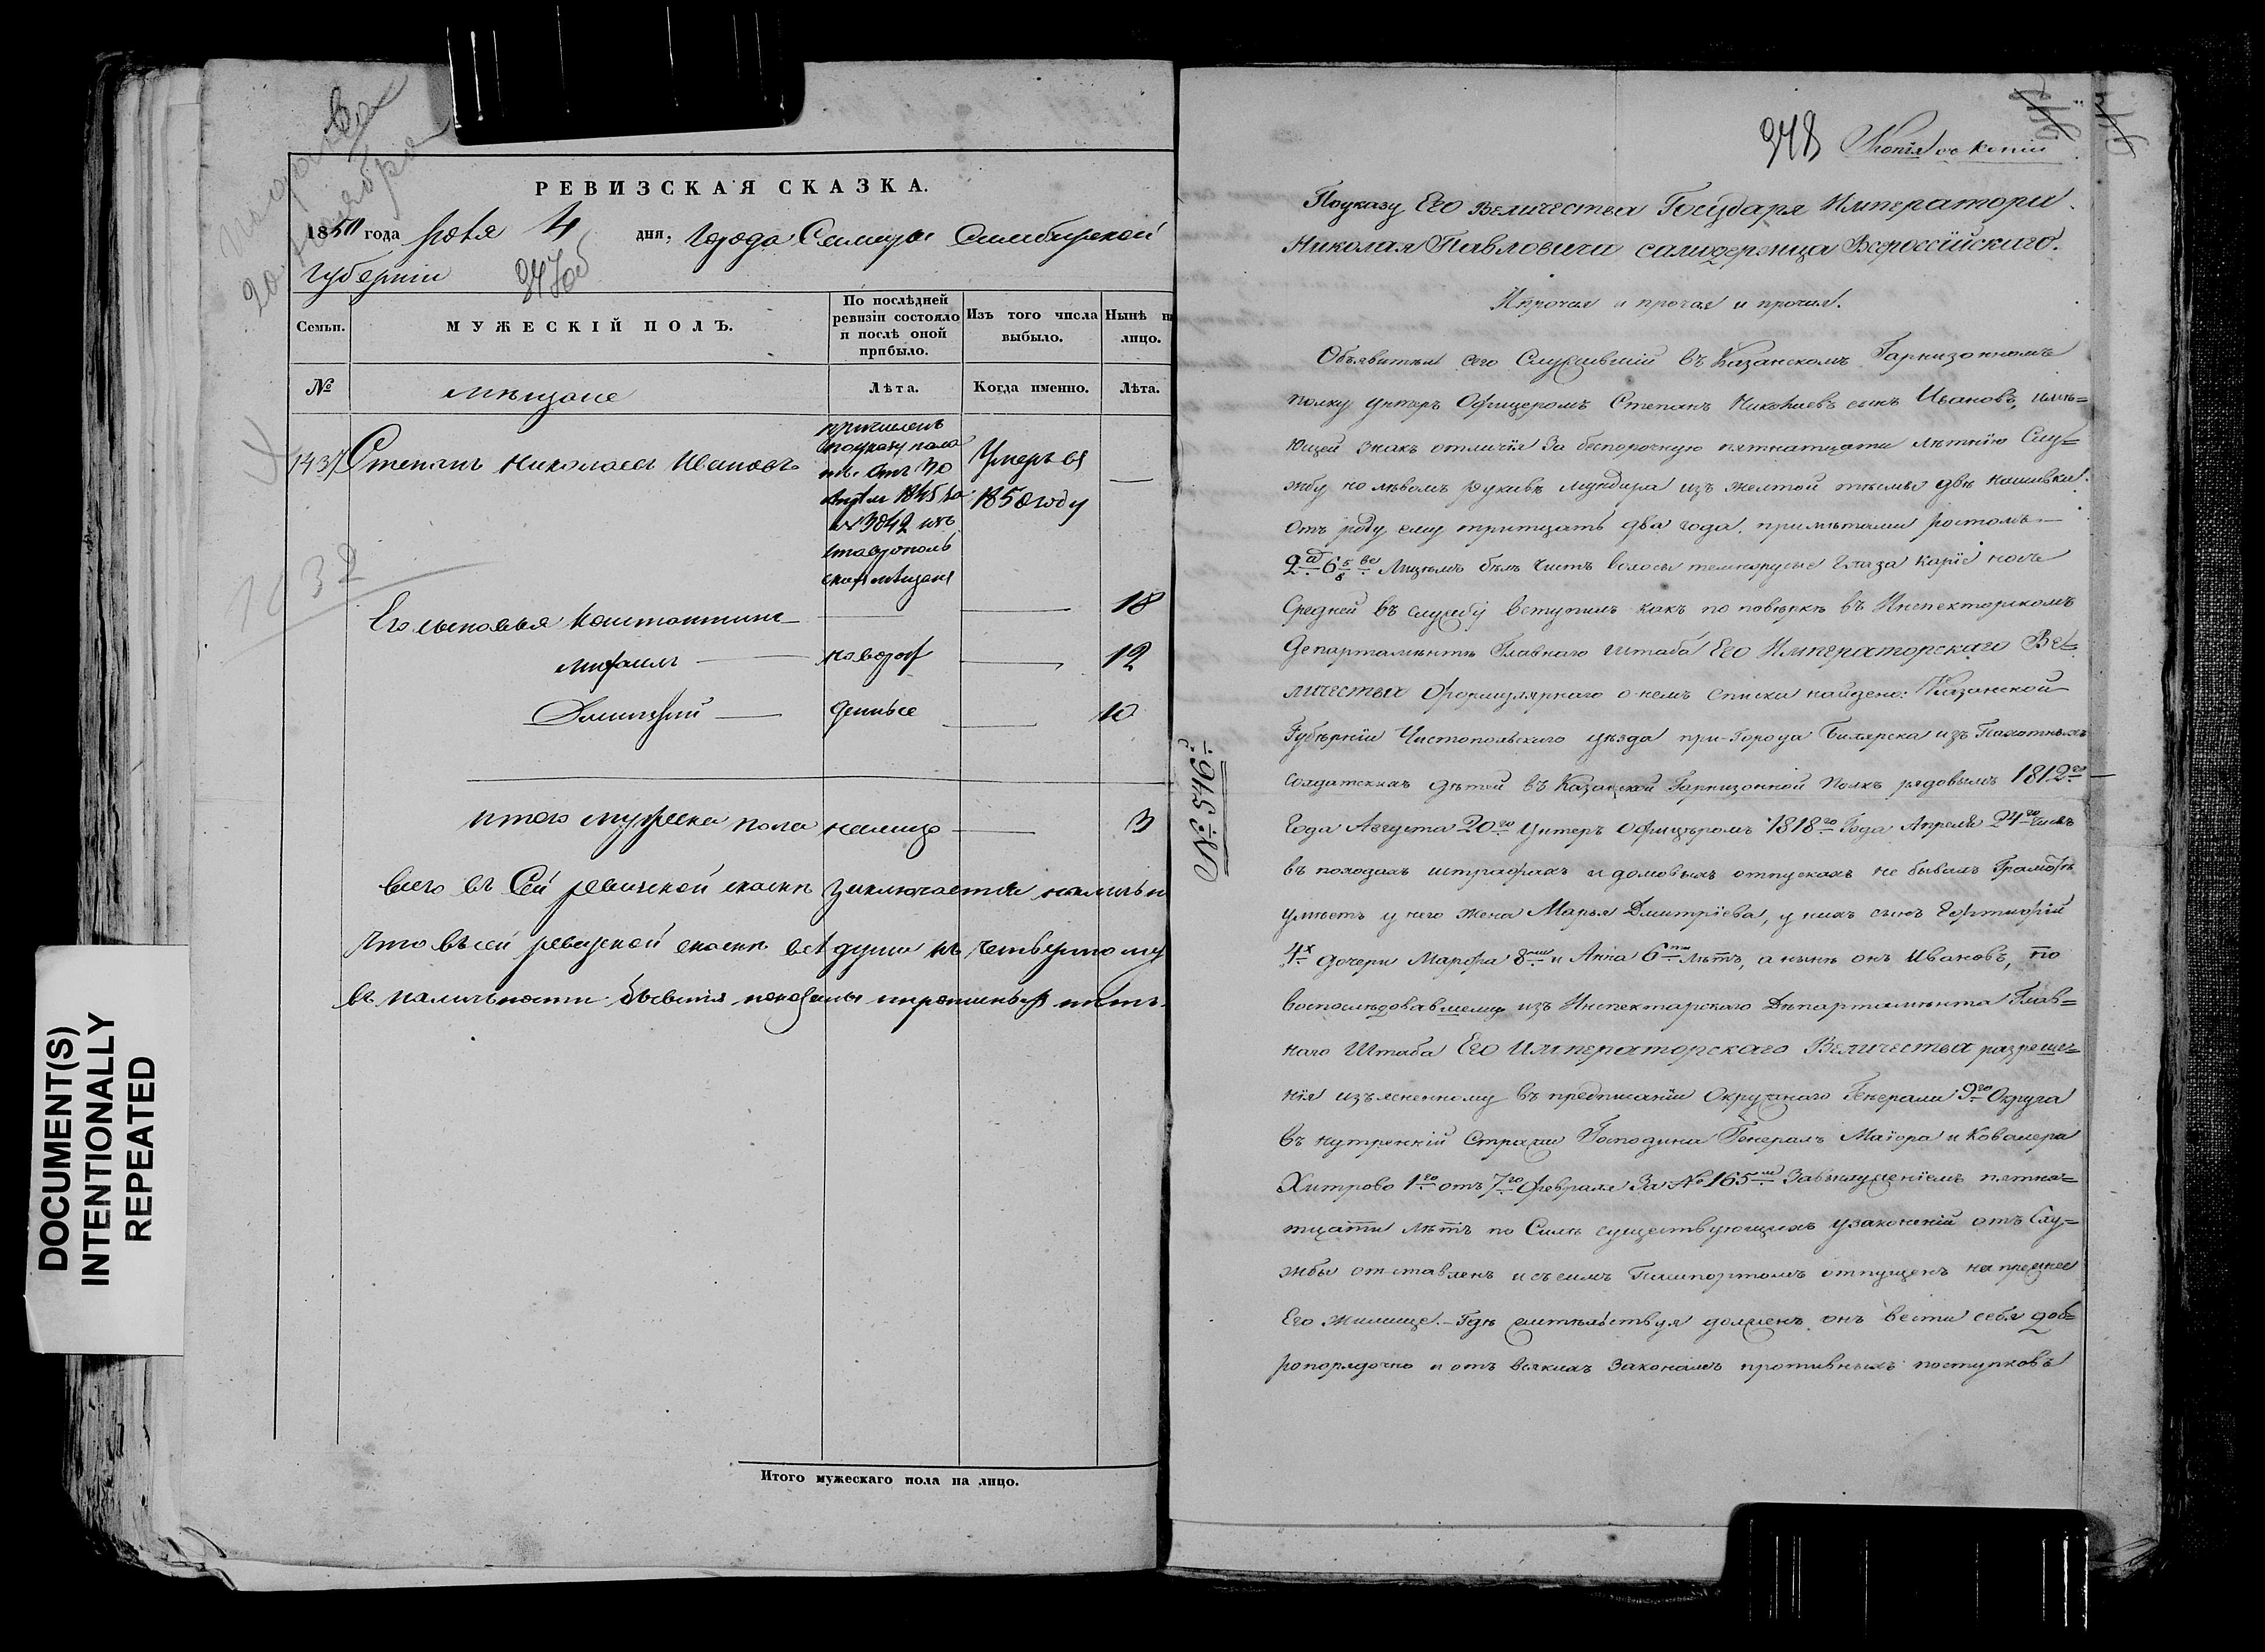 подана
20 ноября
РЕВИЗСКАЯ СКАЗКА.
1850 года ноя 4 дня, Города Самары Симбирской
губерніи
347об
Семьи.
МУЖЕСКІЙ ПОЛЪ.
По послѣдней ревизіи состояло и послѣ оной прибыло.
Изъ того числа выбыло.
Нынѣ на лицо.
№
мещане
Лѣта.
Когда именно.
Лѣта.
1437
Степанъ Николаевъ Ивановъ
причисленъ
по указу пала
ты отъ 30
1845 го
№ 3842 изъ
ставрополь
скихъ мещанъ
Умеръ въ
1850 году
—
1032
Его сыновья Константинъ — — 18
михаилъ — новорож — 12
Дмитрий — денные — 10
итого мужеска пола налицо — 3
всего въ Сей ревизской сказке заключается наличны
Что въ сей ревизской сказке все души къ четвертому
въ наличности показаны и прописныхъ нетъ.
Итого мужескаго пола на лицо.
DOCUMENT(S)
INTENTIONALLY
REPEATED
№ 945
348 Копія съ Копіи
По указу Его Величества Государя Императора
Николая Павловича самодержца Всероссійскаго.
И прочая и прочая и прочая.
Объявитель сего Служившій въ Казанскомъ Гарнизонномъ
полку унтеръ Офицеромъ Степанъ Николаевъ сынъ Ивановъ, имѣ=
ющей знакъ отличія За беспорочную пятнатцати лѣтнію Слу=
жбу на лѣвомъ рукавѣ мундира изъ желтой тесьмы двѣ нашивки.
отъ роду ему тритцать два года. примѣтами ростомъ—
2а 6 5/8 ве. Лицемъ белъ чистъ волосы темнорусые Глаза карие носъ
Средней въ службу вступилъ какъ по повѣркѣ въ Инспекторскомъ
Департаментѣ Главнаго Штаба Его Императорскаго Ве=
личества Формулярнаго о немъ Списка найдено: Казанской
Губѣрніи Чистопольскаго уѣзда при-Города Билярска изъ Пахотныхъ
солдатскихъ дѣтей въ Казанской Гарнизонной Полкъ рядовымъ 1812го
Года Августа 20го Унтеръ офицѣромъ 1818го Года Апреля 24го числа
въ походахъ штрафахъ и домовыхъ отпускахъ не бывалъ Грамотѣ
умѣетъ у него жена Марья Дмитріева, у нихъ сынъ
4х дочери Марфа 8ми и Анна 6ти лѣтъ, а нынѣ онъ Ивановъ, по
воспоследовавшему изъ Инспектарского Дѣпартамѣнта Глав=
наго Штаба Его Императорскаго Величества разреше=
нія изъясненному въ предписаніи Окружнаго Генерала 9го Округа
въ нутренній Стражи Господина Генералъ Маіора и Кавалера
Хитрово 1го отъ 7го Февраля За № 165м За выслуженіемъ пятна=
тцати лѣтъ по Силѣ существующихъ узаконеній отъ Слу=
жбы отставленъ и съ симъ Пашпортомъ отпущенъ на прежнее
Его жилище.— Где жительствуя долженъ онъ вести себя доб=
ропорядочно и отъ всякихъ Законамъ противныхъ поступковъ